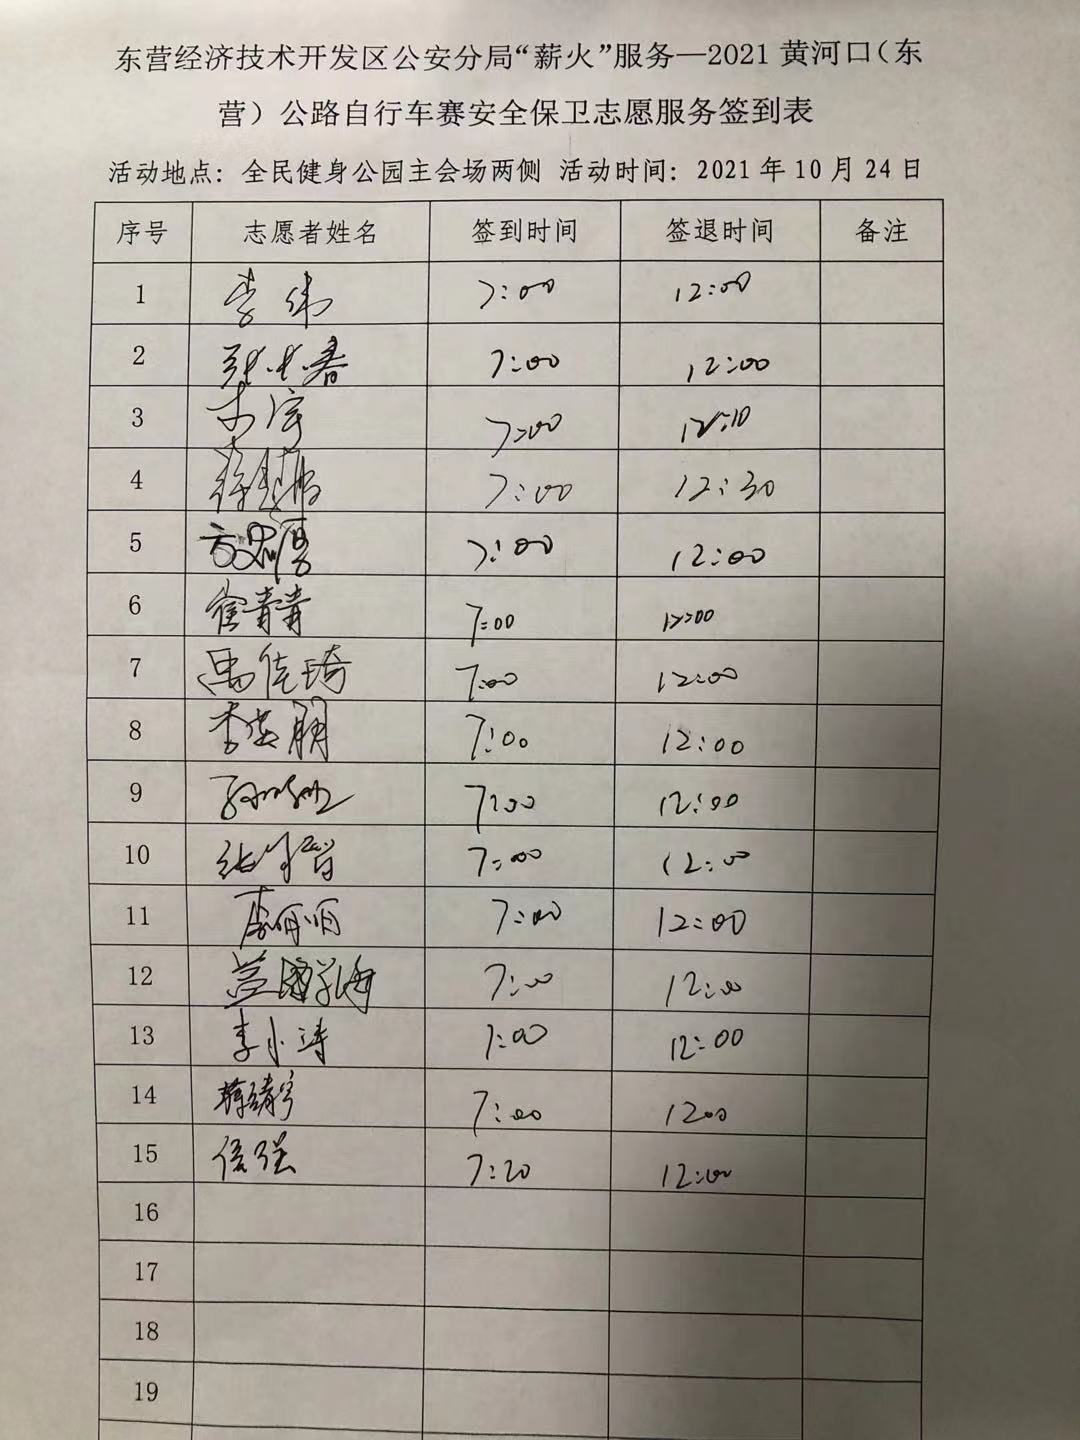 东营经济技术开发区公安分局“薪火”服务—2021 黄河口（东
营）公路自行车赛安全保卫志愿服务签到表
活动地点：全民健身公园主会场两侧 活动时间：2021 年 10 月 24 日
序号 志愿者姓名 签到时间 签退时间 备注
1 李伟 7:00 12:00
2 7:00 12:00
3 7:00 12:10
4 7:00 12:30
5 7:00 12:00
6 崔青青 7:00 12:00
7 禹佳琦 7:00 12:00
8 7:00 12:00
9 7:00 12:00
10 7:00 12:00
11 李丽丽 7:00 12:00
12 7:00 12:00
13 李小涛 7:00 12:00
14 7:00 1200
15 信强 7:20 12:00
16
17
18
19